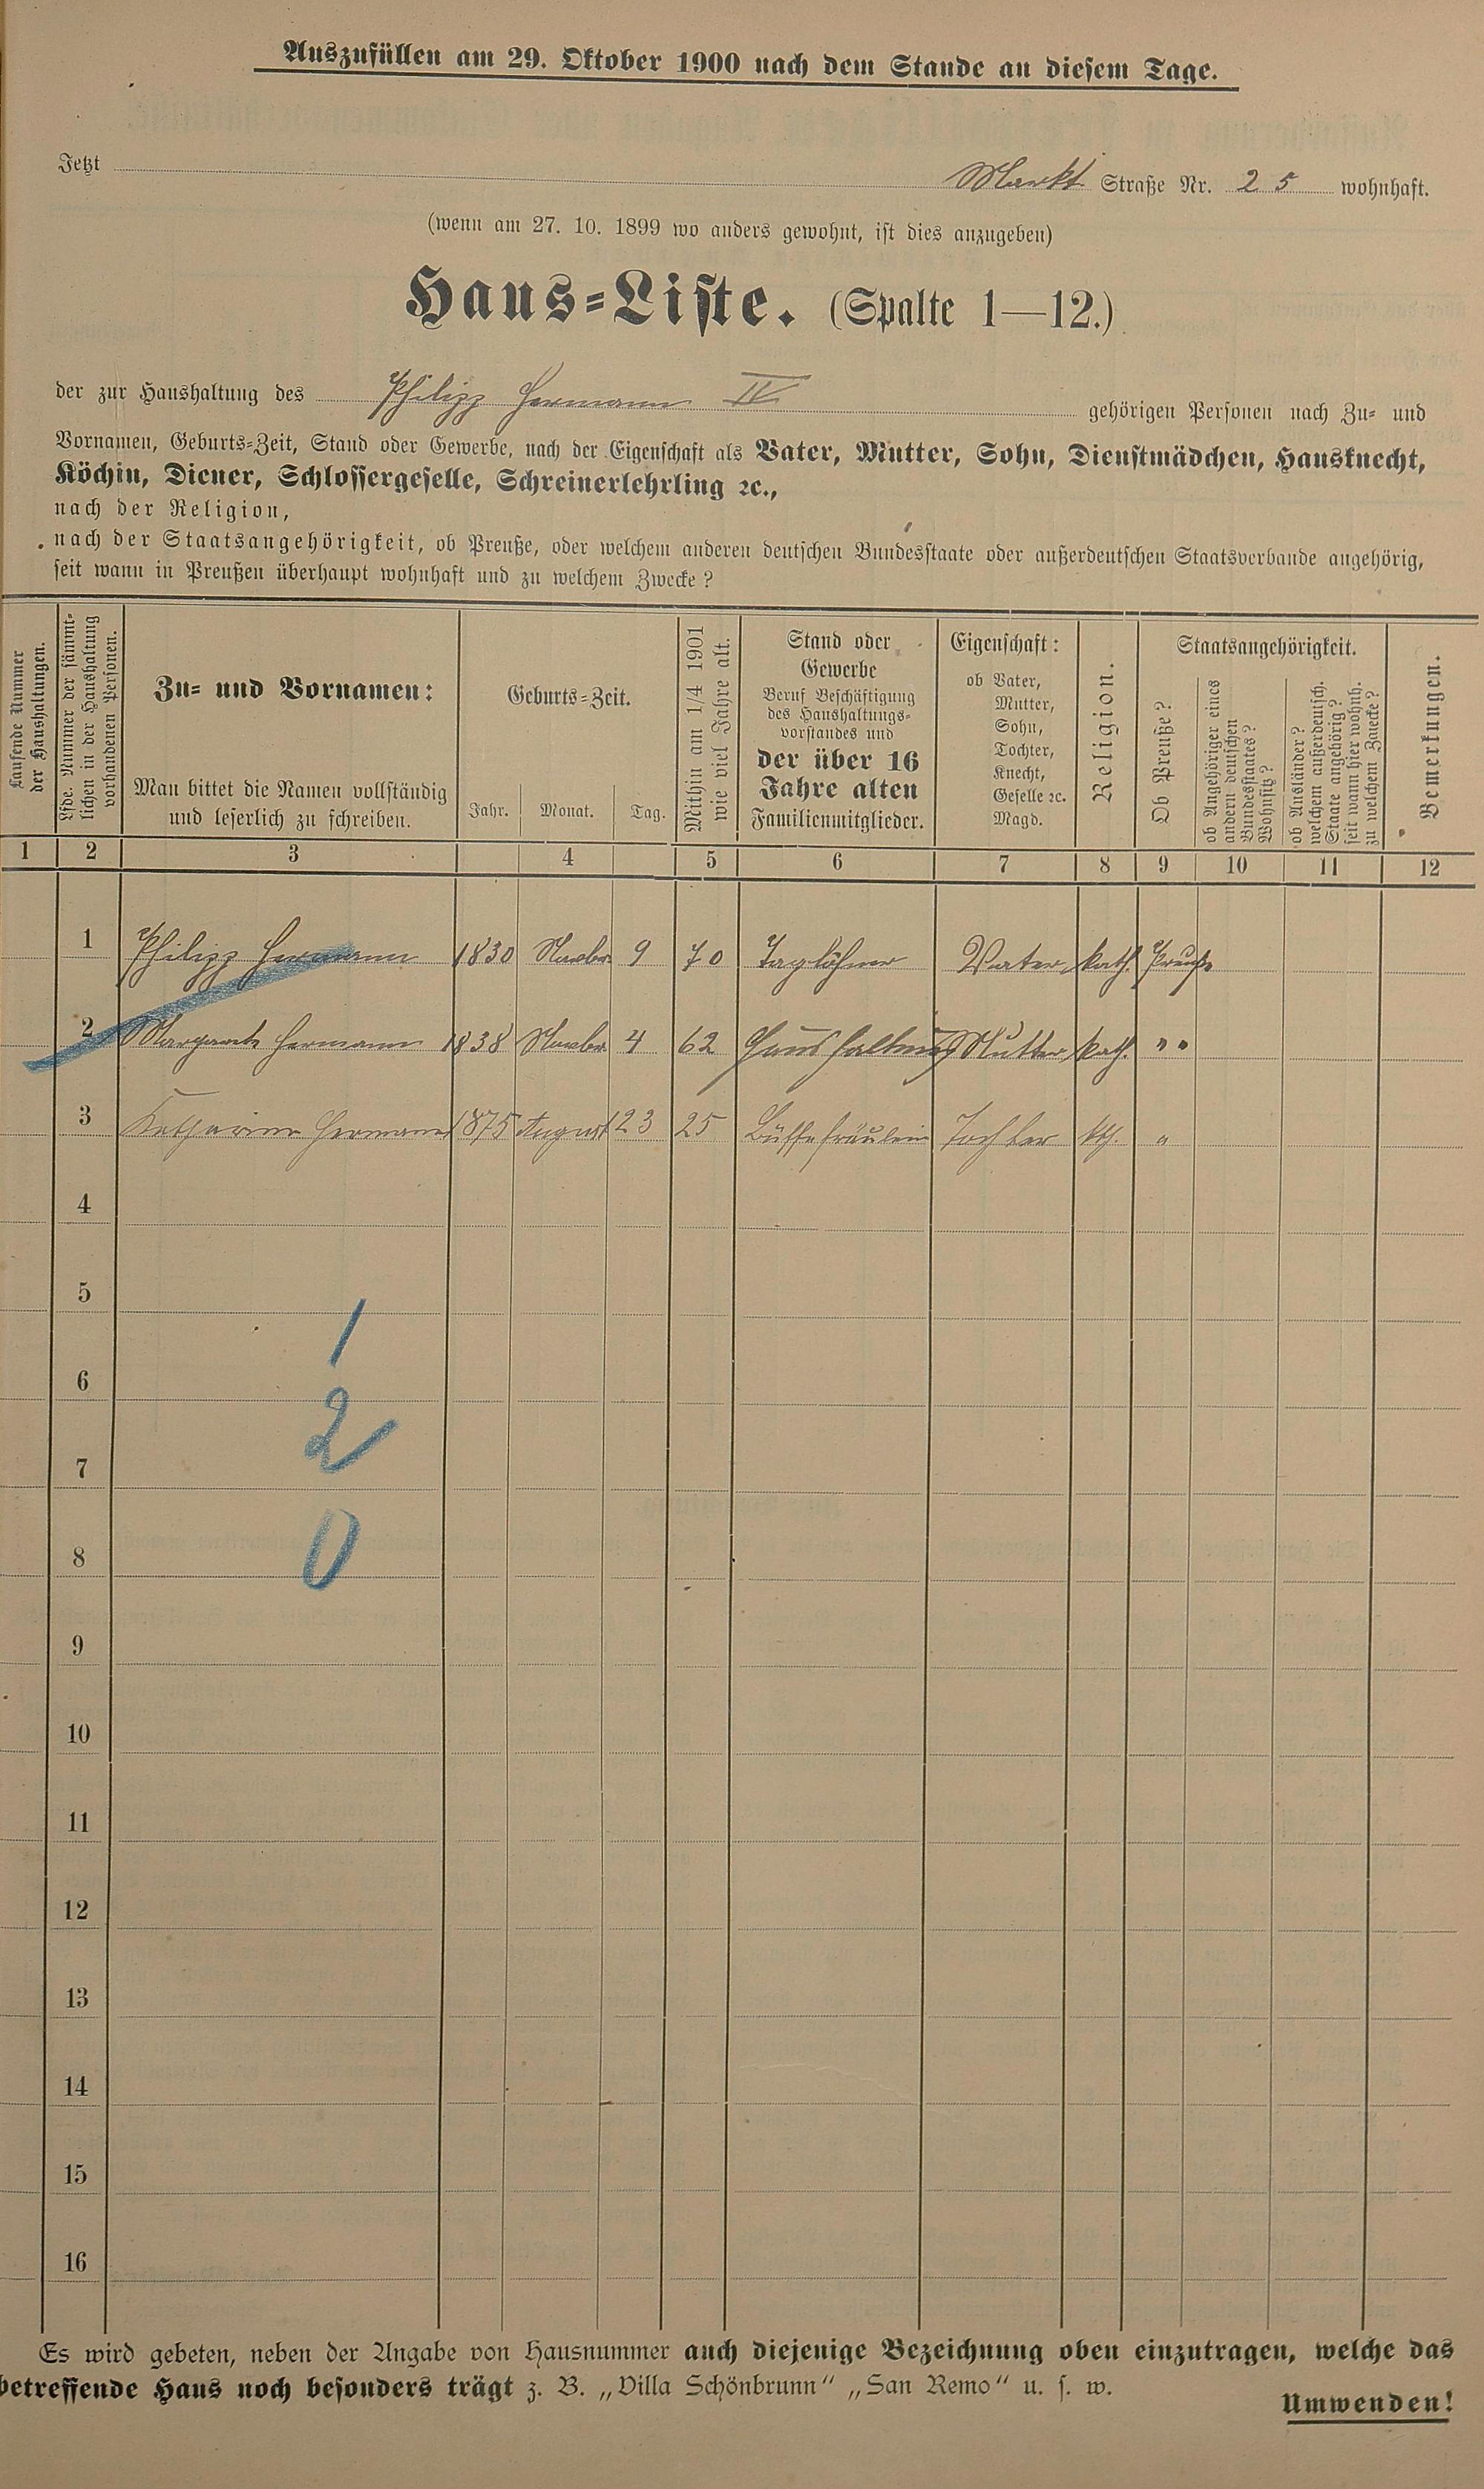 Auszufüllen am 29. Oktober 1900 nach dem Stande an diesem Tage.
Jetzt Markt Straße Nr. 25 wohnhaft.
(wenn am 27. 10. 1899 wo anders gewohnt, ist dies anzugeben)
Haus-Liste. (Spalte 1—12.)
der zur Haushaltung des Philipp Hermann IV gehörigen Personen nach Zu- und
Vornamen, Geburts-Zeit, Stand oder Gewerbe, nach der Eigenschaft als Vater, Mutter, Sohn, Dienstmädchen, Hausknecht,
Köchin, Diener, Schlossergeselle, Schreinerlehrling ꝛc.,
nach der Religion,
nach der Staatsangehörigkeit, ob Preuße, oder welchem anderen deutschen Bundesstaate oder außerdeutschen Staatsverbande angehörig,
seit wann in Preußen überhaupt wohnhaft und zu welchem Zwecke?
Laufende Nummer
der Haushaltungen.
Lfde. Nummer der sämmt-
lichen in der Haushaltung
vorhandenen Personen.
Zu- und Vornamen:
Man bittet die Namen vollständig
und leserlich zu schreiben.
Geburts-Zeit.
Jahr. Monat. Tag.
Mithin am 1/4 1901
wie viel Jahre alt.
Stand oder
Gewerbe
Beruf Beschäftigung
des Haushaltungs-
vorstandes und
der über 16
Jahre alten
Familienmitglieder.
Eigenschaft:
ob Vater,
Mutter,
Sohn,
Tochter,
Knecht,
Geselle ꝛc.
Magd.
Religion.
Staatsangehörigkeit.
Ob Preuße?
ob Angehöriger eines
andern deutschen
Bundesstaates?
Wohnsitz?
ob Ausländer?
welchem außerdeutsch.
Staate angehörig?
seit wann hier wohnh.
zu welchem Zwecke?
Bemerkungen.
1 2 3 4 5 6 7 8 9 10 11 12
1 Philipp Hermann 1830 Novbr. 9 70 Taglöhner Vater kath. Preuße
2 Margareth Hermann 1838 Novbr. 4 62 Haushaltung Mutter kath. " "
3 Katharina Hermann 1875 August 23 25 Büffefräulein Tochter kth. "
4
5
1
6
2
7
0
8
9
10
11
12
13
14
15
16
Es wird gebeten, neben der Angabe von Hausnummer auch diejenige Bezeichnung oben einzutragen, welche das
betreffende Haus noch besonders trägt z. B. „Villa Schönbrunn“ „San Remo“ u. s. w.
Umwenden!